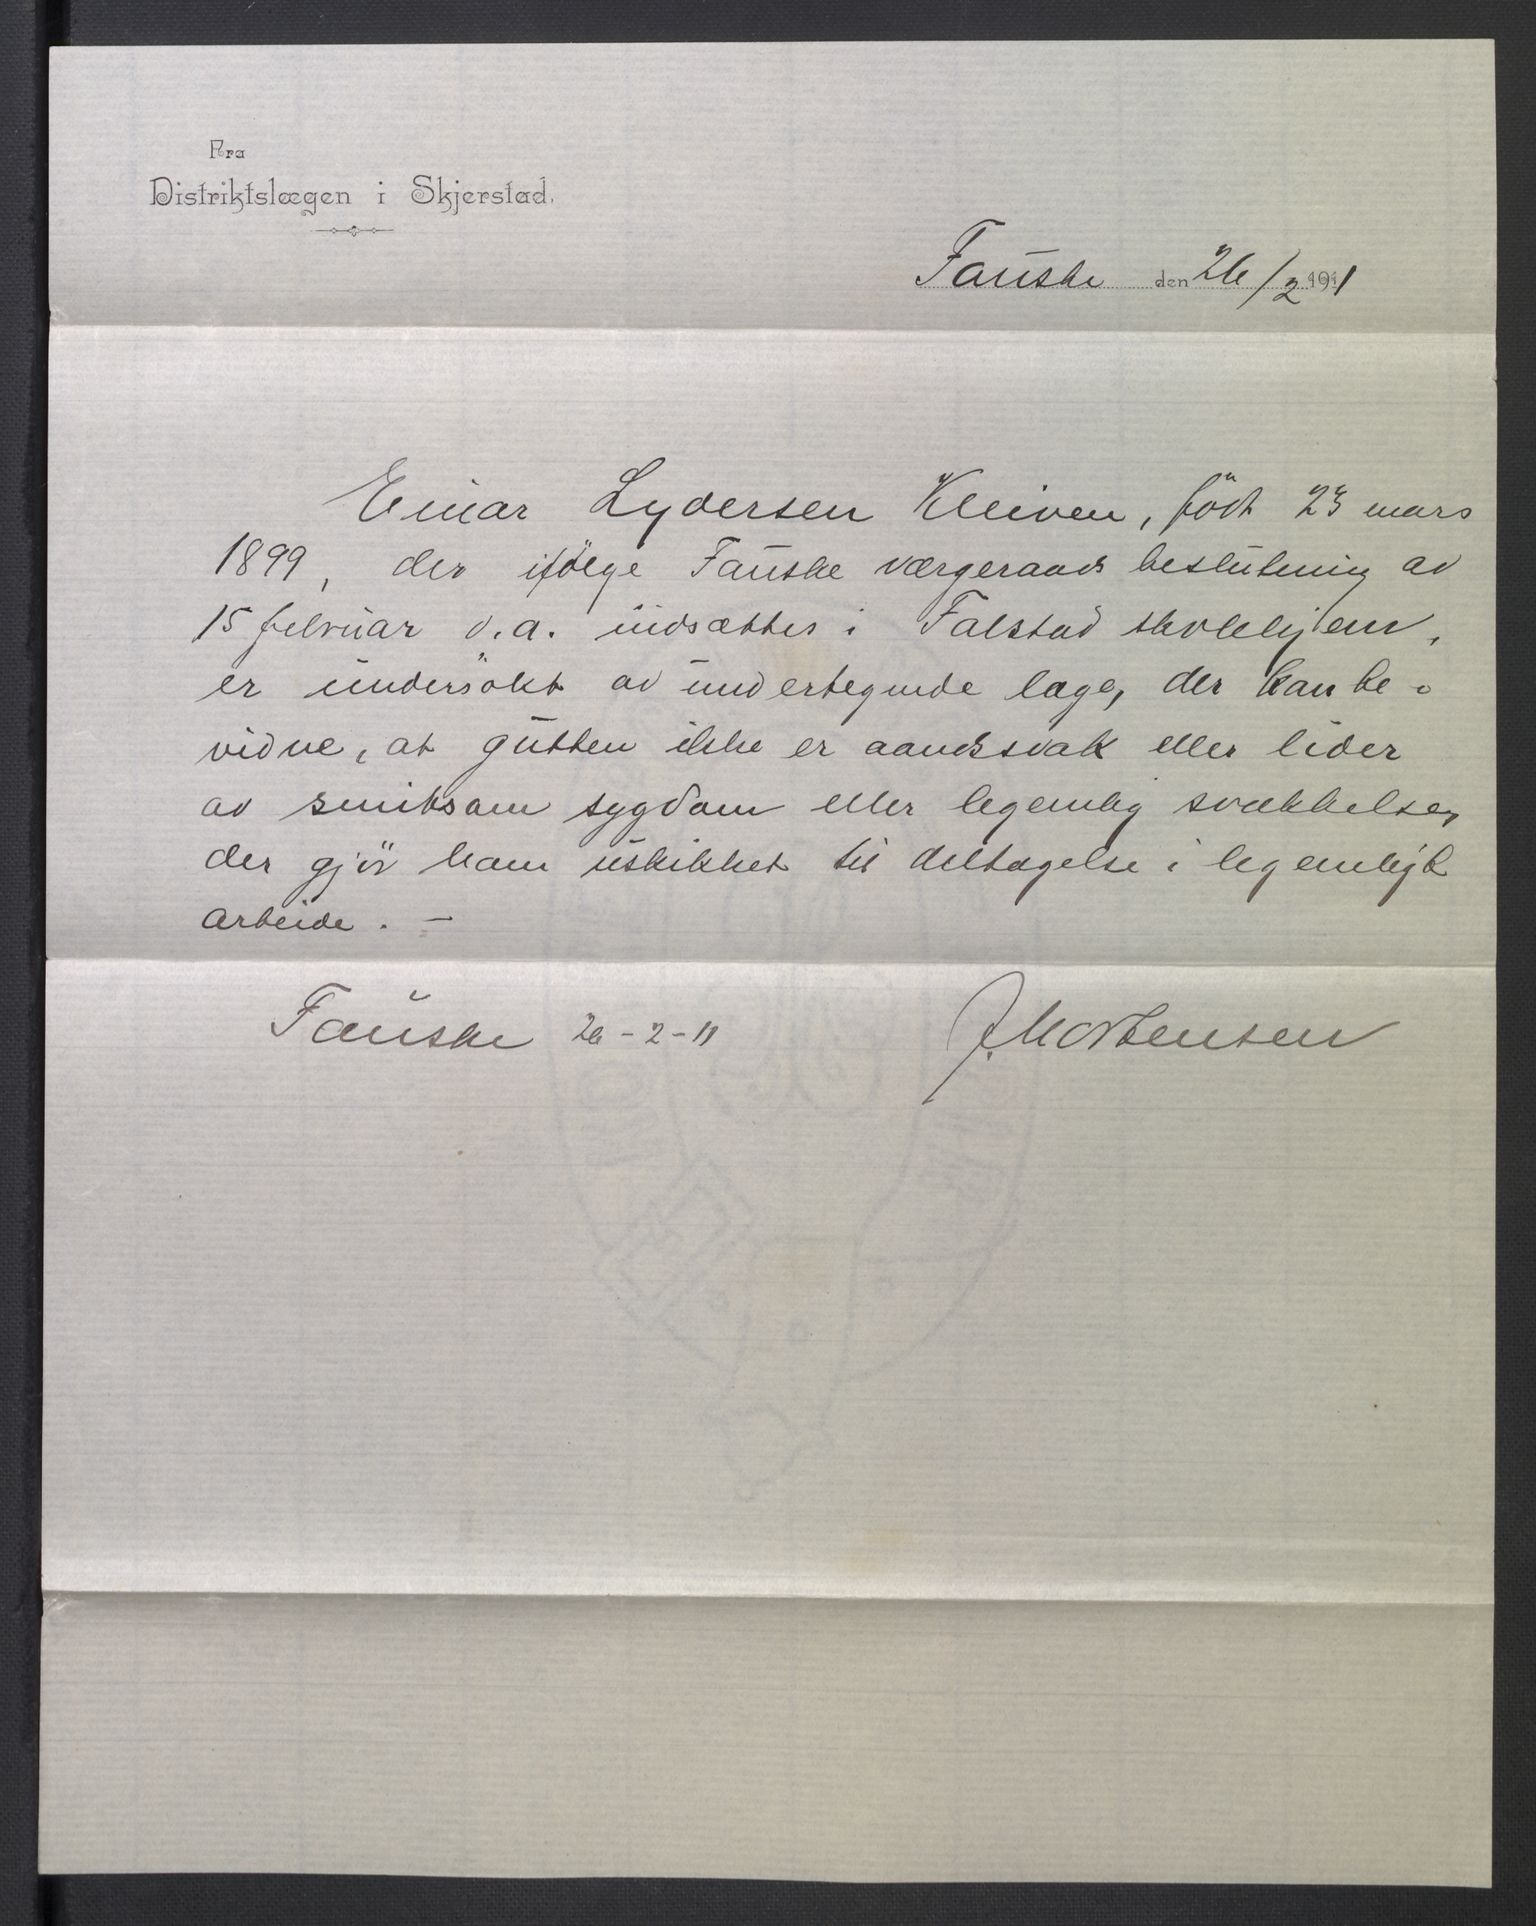 Fra
Distriktslægen i Skjerstad.
Fauske den 26/2 1911
Einar Lydersen Kleiven, född 23 mars
1899, der ifölge Fauske værgeraads beslutning av
15 februar d.a. indsættes i Falstad skolehjem,
er undersökt av undertegnede læge, der kan be-
vidne, at gutten ikke er aandssvak eller lider
av smitsom sygdom eller legemlig svækkelse,
der gjör ham uskikket til deltagelse i legemligt
arbeide. -
Fauske 26-2-11 J. Mortensen